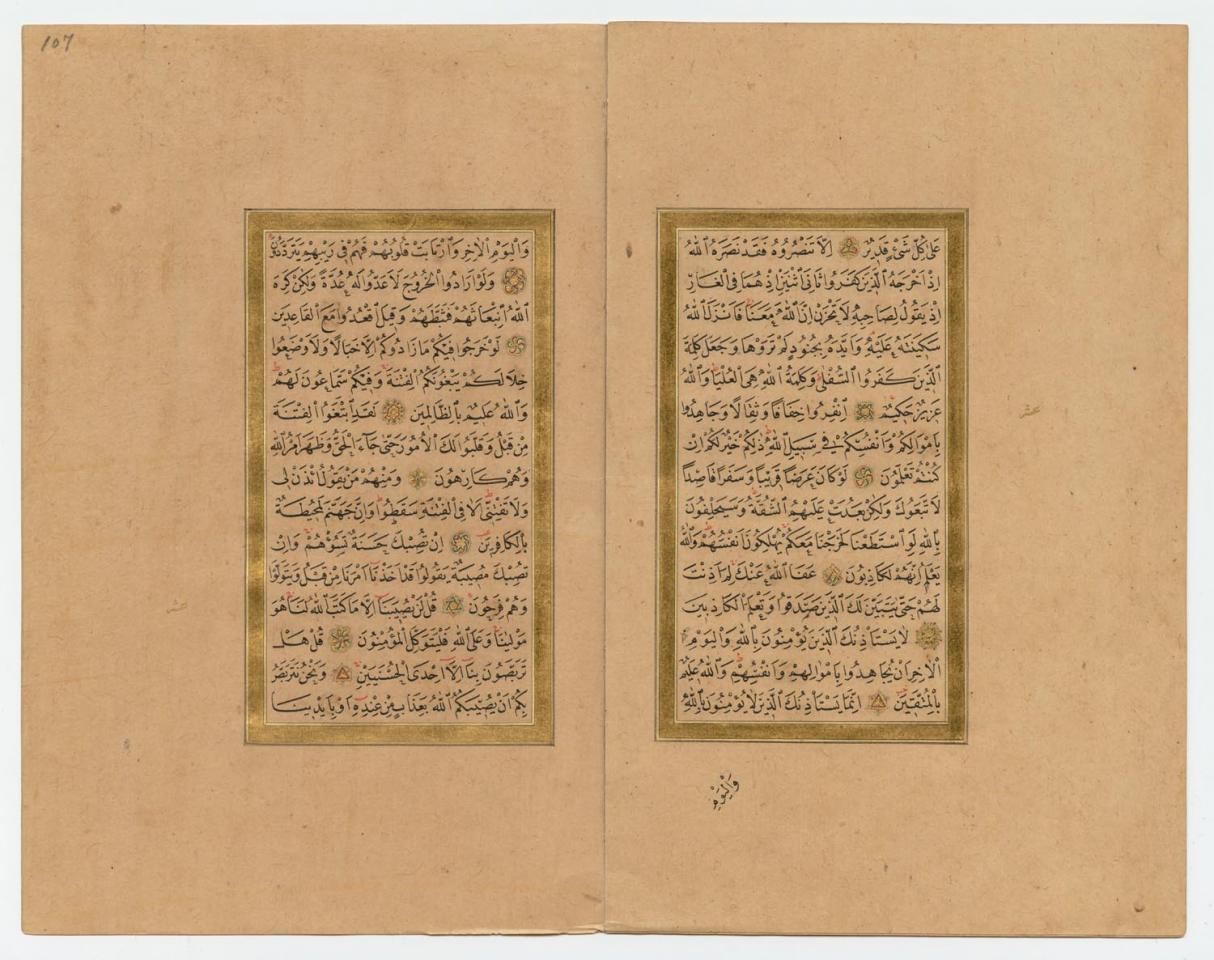 عَلٰى كُلِّ شَىْءٍ قَدِيرٌ اِلَّا تَنْصُرُوهُ فَقَدْ نَصَرَهُ اللّٰهُ
اِذْ اَخْرَجَهُ الَّذِينَ كَفَرُوا ثَانِىَ اثْنَيْنِ اِذْ هُمَا فِى الْغَارِ
اِذْ يَقُولُ لِصَاحِبِهِ لَا تَحْزَنْ اِنَّ اللّٰهَ مَعَنَا فَاَنْزَلَ اللّٰهُ
سَكِينَتَهُ عَلَيْهِ وَاَيَّدَهُ بِجُنُودٍ لَمْ تَرَوْهَا وَجَعَلَ كَلِمَةَ
الَّذِينَ كَفَرُوا السُّفْلٰى وَكَلِمَةُ اللّٰهِ هِىَ الْعُلْيَا وَاللّٰهُ
عَزِيزٌ حَكِيمٌ اِنْفِرُوا خِفَافًا وَثِقَالًا وَجَاهِدُوا
بِاَمْوَالِكُمْ وَاَنْفُسِكُمْ فِى سَبِيلِ اللّٰهِ ذٰلِكُمْ خَيْرٌ لَكُمْ اِنْ
كُنْتُمْ تَعْلَمُونَ لَوْ كَانَ عَرَضًا قَرِيبًا وَسَفَرًا قَاصِدًا
لَاتَّبَعُوكَ وَلٰكِنْ بَعُدَتْ عَلَيْهِمُ الشُّقَّةُ وَسَيَحْلِفُونَ
بِاللّٰهِ لَوِ اسْتَطَعْنَا لَخَرَجْنَا مَعَكُمْ يُهْلِكُونَ اَنْفُسَهُمْ وَاللّٰهُ
يَعْلَمُ اِنَّهُمْ لَكَاذِبُونَ عَفَا اللّٰهُ عَنْكَ لِمَ اَذِنْتَ
لَهُمْ حَتّٰى يَتَبَيَّنَ لَكَ الَّذِينَ صَدَقُوا وَتَعْلَمَ الْكَاذِبِينَ
لَا يَسْتَاْذِنُكَ الَّذِينَ يُؤْمِنُونَ بِاللّٰهِ وَالْيَوْمِ
الْاٰخِرِ اَنْ يُجَاهِدُوا بِاَمْوَالِهِمْ وَاَنْفُسِهِمْ وَاللّٰهُ عَلِيمٌ
بِالْمُتَّقِينَ اِنَّمَا يَسْتَاْذِنُكَ الَّذِينَ لَا يُؤْمِنُونَ بِاللّٰهِ
عشر
وَالْيَوْمِ
107
وَالْيَوْمِ الْاٰخِرِ وَارْتَابَتْ قُلُوبُهُمْ فَهُمْ فِى رَيْبِهِمْ يَتَرَدَّدُونَ
وَلَوْ اَرَادُوا الْخُرُوجَ لَاَعَدُّوا لَهُ عُدَّةً وَلٰكِنْ كَرِهَ
اللّٰهُ انْبِعَاثَهُمْ فَثَبَّطَهُمْ وَقِيلَ اقْعُدُوا مَعَ الْقَاعِدِينَ
لَوْ خَرَجُوا فِيكُمْ مَا زَادُوكُمْ اِلَّا خَبَالًا وَلَاَوْضَعُوا
خِلَالَكُمْ يَبْغُونَكُمُ الْفِتْنَةَ وَفِيكُمْ سَمَّاعُونَ لَهُمْ
وَاللّٰهُ عَلِيمٌ بِالظَّالِمِينَ لَقَدِ ابْتَغَوُا الْفِتْنَةَ
مِنْ قَبْلُ وَقَلَّبُوا لَكَ الْاُمُورَ حَتّٰى جَاءَ الْحَقُّ وَظَهَرَ اَمْرُ اللّٰهِ
وَهُمْ كَارِهُونَ وَمِنْهُمْ مَنْ يَقُولُ ائْذَنْ لِى
وَلَا تَفْتِنِّى اَلَا فِى الْفِتْنَةِ سَقَطُوا وَاِنَّ جَهَنَّمَ لَمُحِيطَةٌ
بِالْكَافِرِينَ اِنْ تُصِبْكَ حَسَنَةٌ تَسُؤْهُمْ وَاِنْ
تُصِبْكَ مُصِيبَةٌ يَقُولُوا قَدْ اَخَذْنَا اَمْرَنَا مِنْ قَبْلُ وَيَتَوَلَّوْا
وَهُمْ فَرِحُونَ قُلْ لَنْ يُصِيبَنَا اِلَّا مَا كَتَبَ اللّٰهُ لَنَا هُوَ
مَوْلٰينَا وَعَلَى اللّٰهِ فَلْيَتَوَكَّلِ الْمُؤْمِنُونَ قُلْ هَلْ
تَرَبَّصُونَ بِنَا اِلَّا اِحْدَى الْحُسْنَيَيْنِ وَنَحْنُ نَتَرَبَّصُ
بِكُمْ اَنْ يُصِيبَكُمُ اللّٰهُ بِعَذَابٍ مِنْ عِنْدِهِ اَوْ بِاَيْدِينَا
عشر